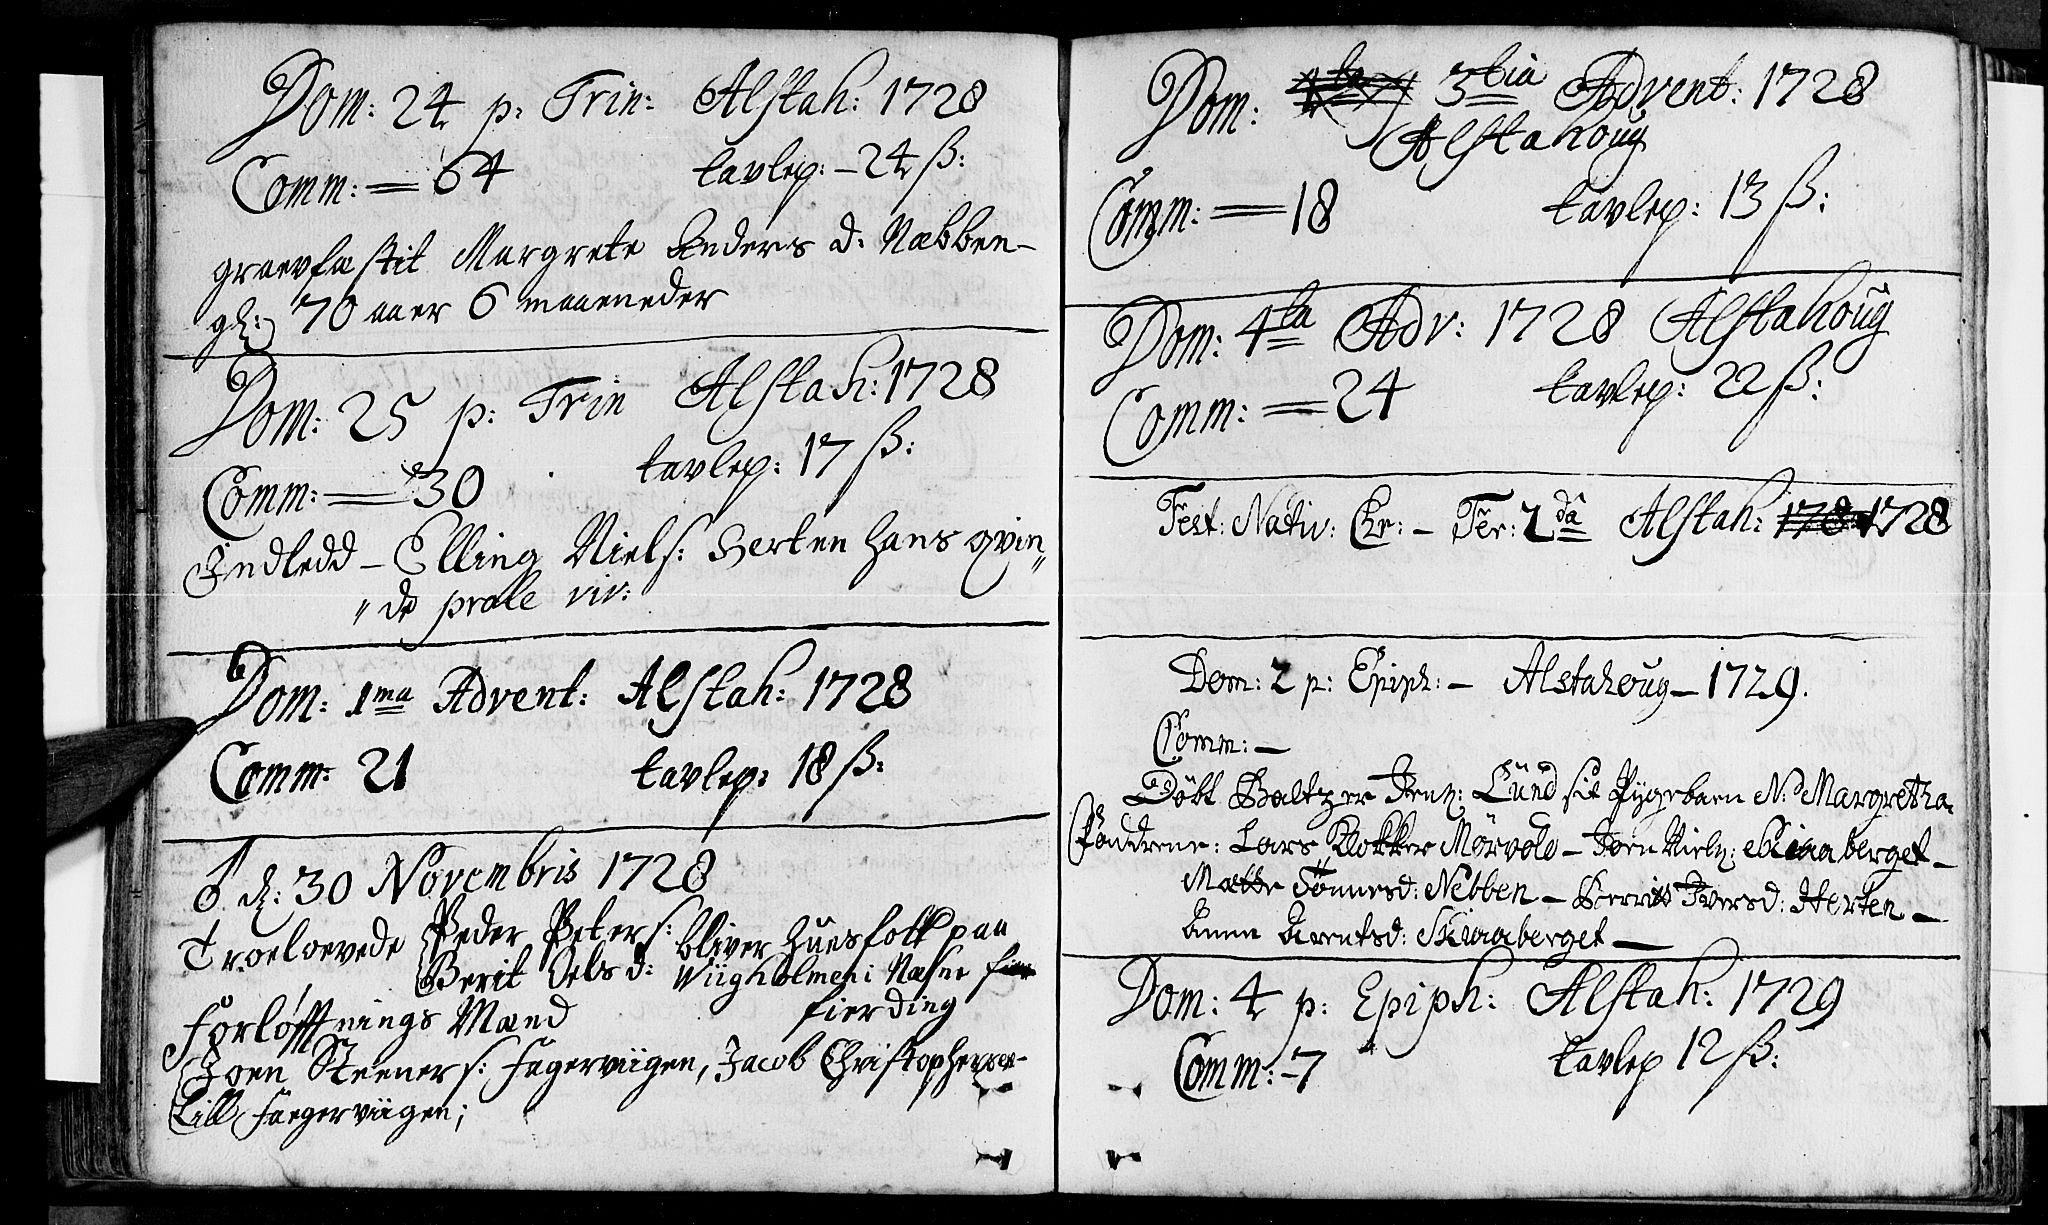 Dom: 24 p: Trin: Alstah: 1728
Comm: = 64 tavlep: - 24 ß:
graevfæstit Margrete Anders d: Næbben -
gl: 70 aaer 6 maaeneder
Dom: 25 p: Trin Alstah: 1728
Comm: = 30 tavlep: 17 ß:
Indledd - Elling Niels: Herten hans qvin„
„de prole viv:
Dom: 1ma Advent: Alstah: 1728
Comm: 21 tavlep: 18 ß:
d: 30 Novembris 1728
Troeloevede Peder Peters: bliver huesfolk paa
Berit Oels d: Wiigholmen i Næsne
fierding
Forløfftnings Mænd
Joen Steeners: Fagerviigen, Jacob Christophersen
Lill Faegerviigen;
Dom: 3tia Advent: 1728
Alstahoug
Comm: = 18 tavlep: 13 ß:
Dom: 4ta Adv: 1728 Alstahoug
Comm: = 24 tavlep: 22 ß:
Fest: Nativ: Chr: - Fer: 2da Alstah: 1728
Dom: 2 p: Epiph: - Alstahoug - 1729.
Comm: -
Døbt Baltzer Lund sit Pygebaen N: Margretha
Faddrene: Lars Bokker - Joen Niels: Skiaaberget -
Mætte Tønnesd: Nebben - Berrit Iversd: Herten -
Anne Arentsd: Skiaaberget -
Dom: 4 p: Epiph: Alstah: 1729
Comm: - 7 tavlep 12 ß: